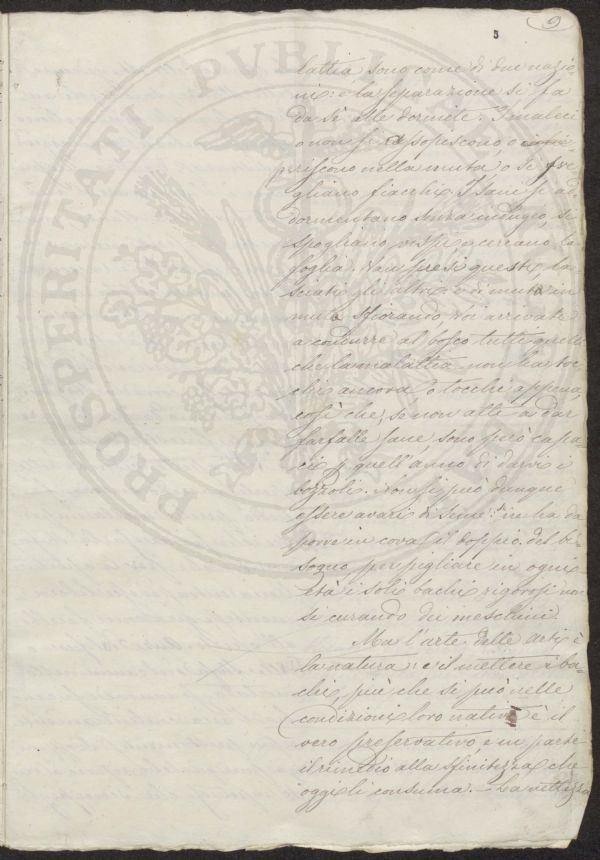 9
3
PROSPERITATI PVBLICAE
lattia sono come di due nazio-
ni: e la separazione si fa
da sè alle dormite. I malati
o non si assopiscono, o
periscono nella muta, o si sve-
gliano fiacchi. I sani si ad-
dormentano senza indugio, si
spogliano vispi e cercano la
foglia. Van presi questi, la-
sciati gli altri: e di muta in
muta sfiorando voi arrivate
a condurre al bosco tutti quelli
che la malattia non ha toc-
chi ancora, o tocchi appena,
così che, se non atti a dar
farfalle sane, sono però capa-
ci p. quell'anno di darvi i
bozzoli. Non si può dunque
essere avari di seme: se ne ha da
porre in cova il doppio del bi-
sogno per pigliare in ogni
età i soli bachi rigorosi non
si curando dei meschini.
Ma l'arte delle arti è
la natura: e il mettere i ba-
chi, più che si può nelle
condizioni loro native è il
vero preservativo e in parte
il rimedio alla sfinitezza che
oggi li consuma. — La nettezza